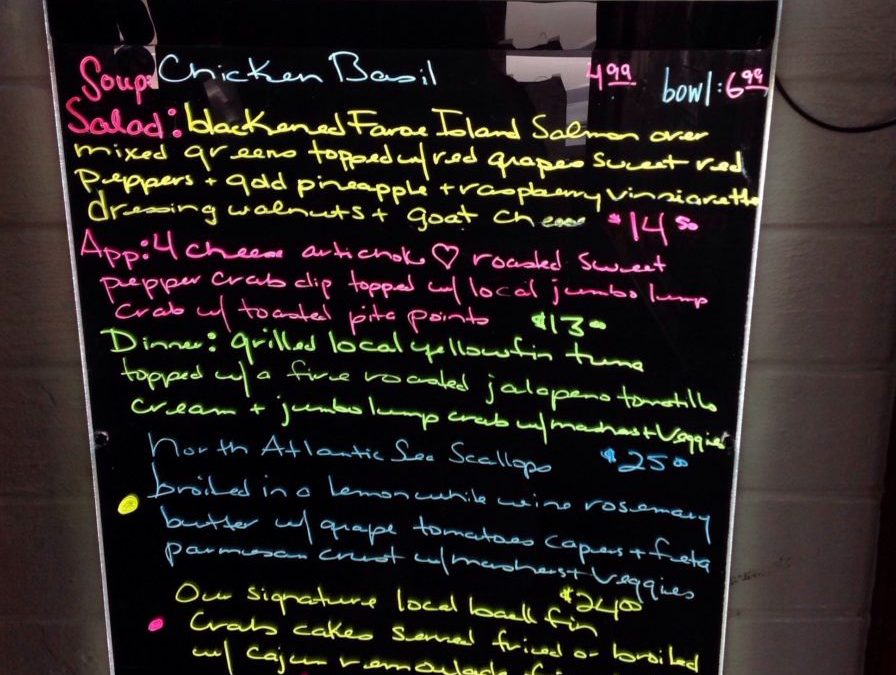 Soup: Chicken Basil 4.99 bowl: 6.99
Salad: blackened Faroe Island Salmon over
mixed greens topped w/ red grapes sweet red
peppers + gold pineapple + raspberry vinniarette
dressing walnuts + goat cheese $14.50
App: 4 cheese artichoke ♡ roasted sweet
pepper crab dip topped w/ local jumbo lump
crab w/ toasted pita points $13.00
Dinner: grilled local yellowfin tuna
topped w/ a fire roasted jalopeno tomatillo
cream + jumbo lump crab w/ mashers + Veggies
North Atlantic Sea Scallops $25.00
broiled in a lemon white wine rosemary
butter w/ grape tomatoes capers + feta
parmesan crust w/ mashers + Veggies
$24.00
Our signature local back fin
Crab cakes served fried or broiled
w/ cajun remoulade